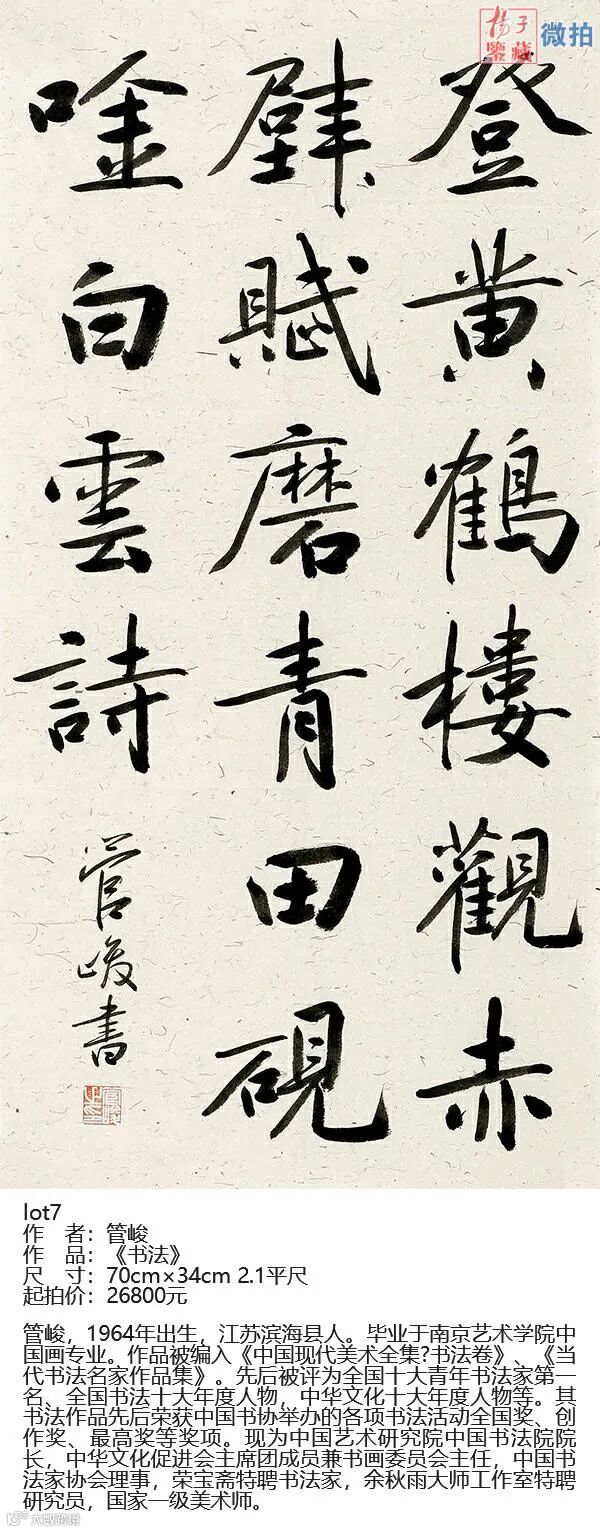 楊子
鑒藏
微拍
登黄鶴樓觀赤
壁賦磨青田硯
唫白雲詩
管峻書
lot7
作 者：管峻
作 品：《书法》
尺 寸：70cm×34cm 2.1平尺
起拍价：26800元
管峻，1964年出生，江苏滨海县人。毕业于南京艺术学院中
国画专业。作品被编入《中国现代美术全集?书法卷》、《当
代书法名家作品集》。先后被评为全国十大青年书法家第一
名、全国书法十大年度人物，中华文化十大年度人物等。其
书法作品先后荣获中国书协举办的各项书法活动全国奖、创
作奖、最高奖等奖项。现为中国艺术研究院中国书法院院
长，中华文化促进会主席团成员兼书画委员会主任，中国书
法家协会理事，荣宝斋特聘书法家，余秋雨大师工作室特聘
研究员，国家一级美术师。